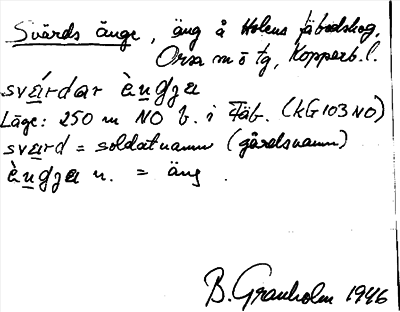 Svärds änge, äng å Holens fäbodskog,
Orsa m o tg, Kopparb. l.
svárdar èngja
Läge: 250 m NO b. i Fäb. (kG 103 NO)
svärd = soldatnamn (gårdsnamn)
èngja n. = äng.
B. Granholm 1946